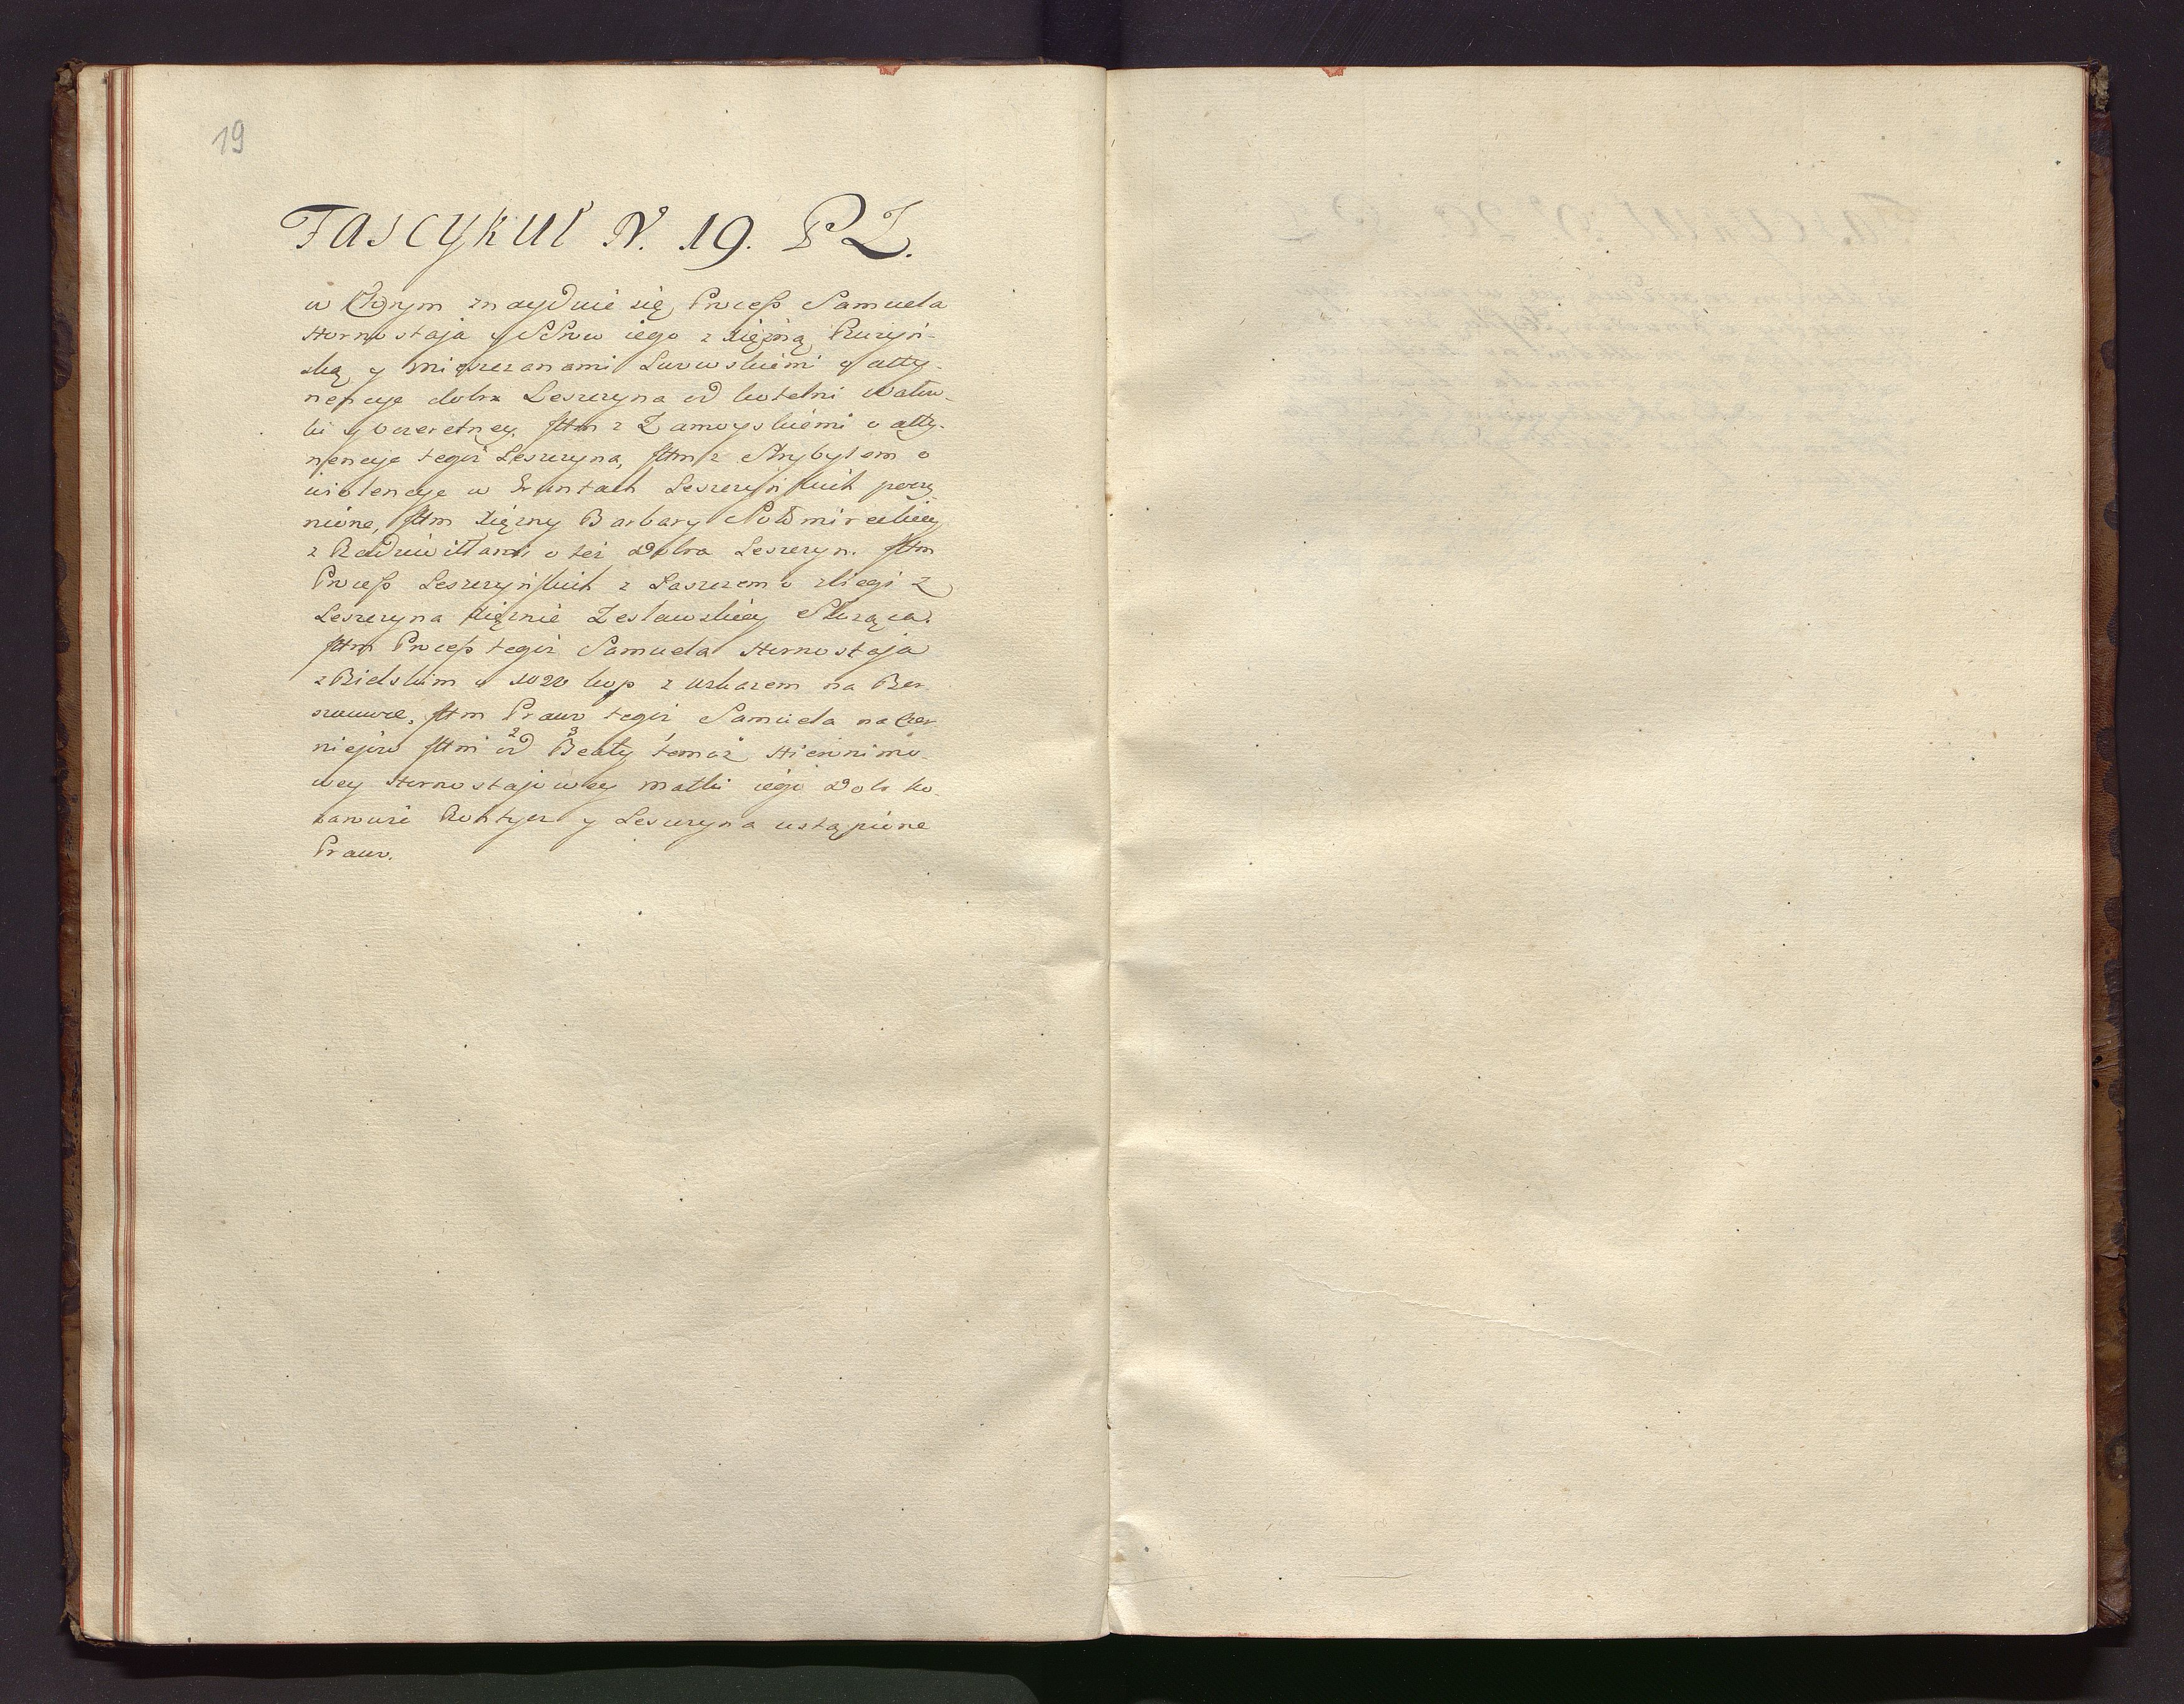 19
Fascykuł N. 19. PZ.
w Ktorym znayduie się Process Samuela
Hornostaja y SSrow iego z Xiężną Rużyń-
ską y Mieszczanami Lwowskiemi o atty-
nencye dobr Leszczyna od Kotelni Wałow-
ki y Oczeretney. Ittm z Zamoyskiemi o atty-
nencye tegoż Leszczyna, Ittm z Strybylem o
wiolencye w Gruntach Leszczyńskich poczy-
nione, Ittm Xiężny Barbary Sołomireckiey
z Radziwiłłami o też Dobra Leszczyn. Ittm
Process Leszczyńskich z Łaszczem o zbiegi z
Leszczyna Xiężnie Zesławskiey Służące.
Ittm Process tegoż Samuela Hornostaja
z Bielskim o 1020 kop z wskazem na Ber-
szowce, Ittm Prawo tegoż Samuela na Czer-
niejow Ittm 2 od 3 Beaty temuż Hieronimo-
wey Hornostajowey Matki iego Dobr Ko-
zarowic Rohtycz y Leszczyna ustąpione
Prawo.